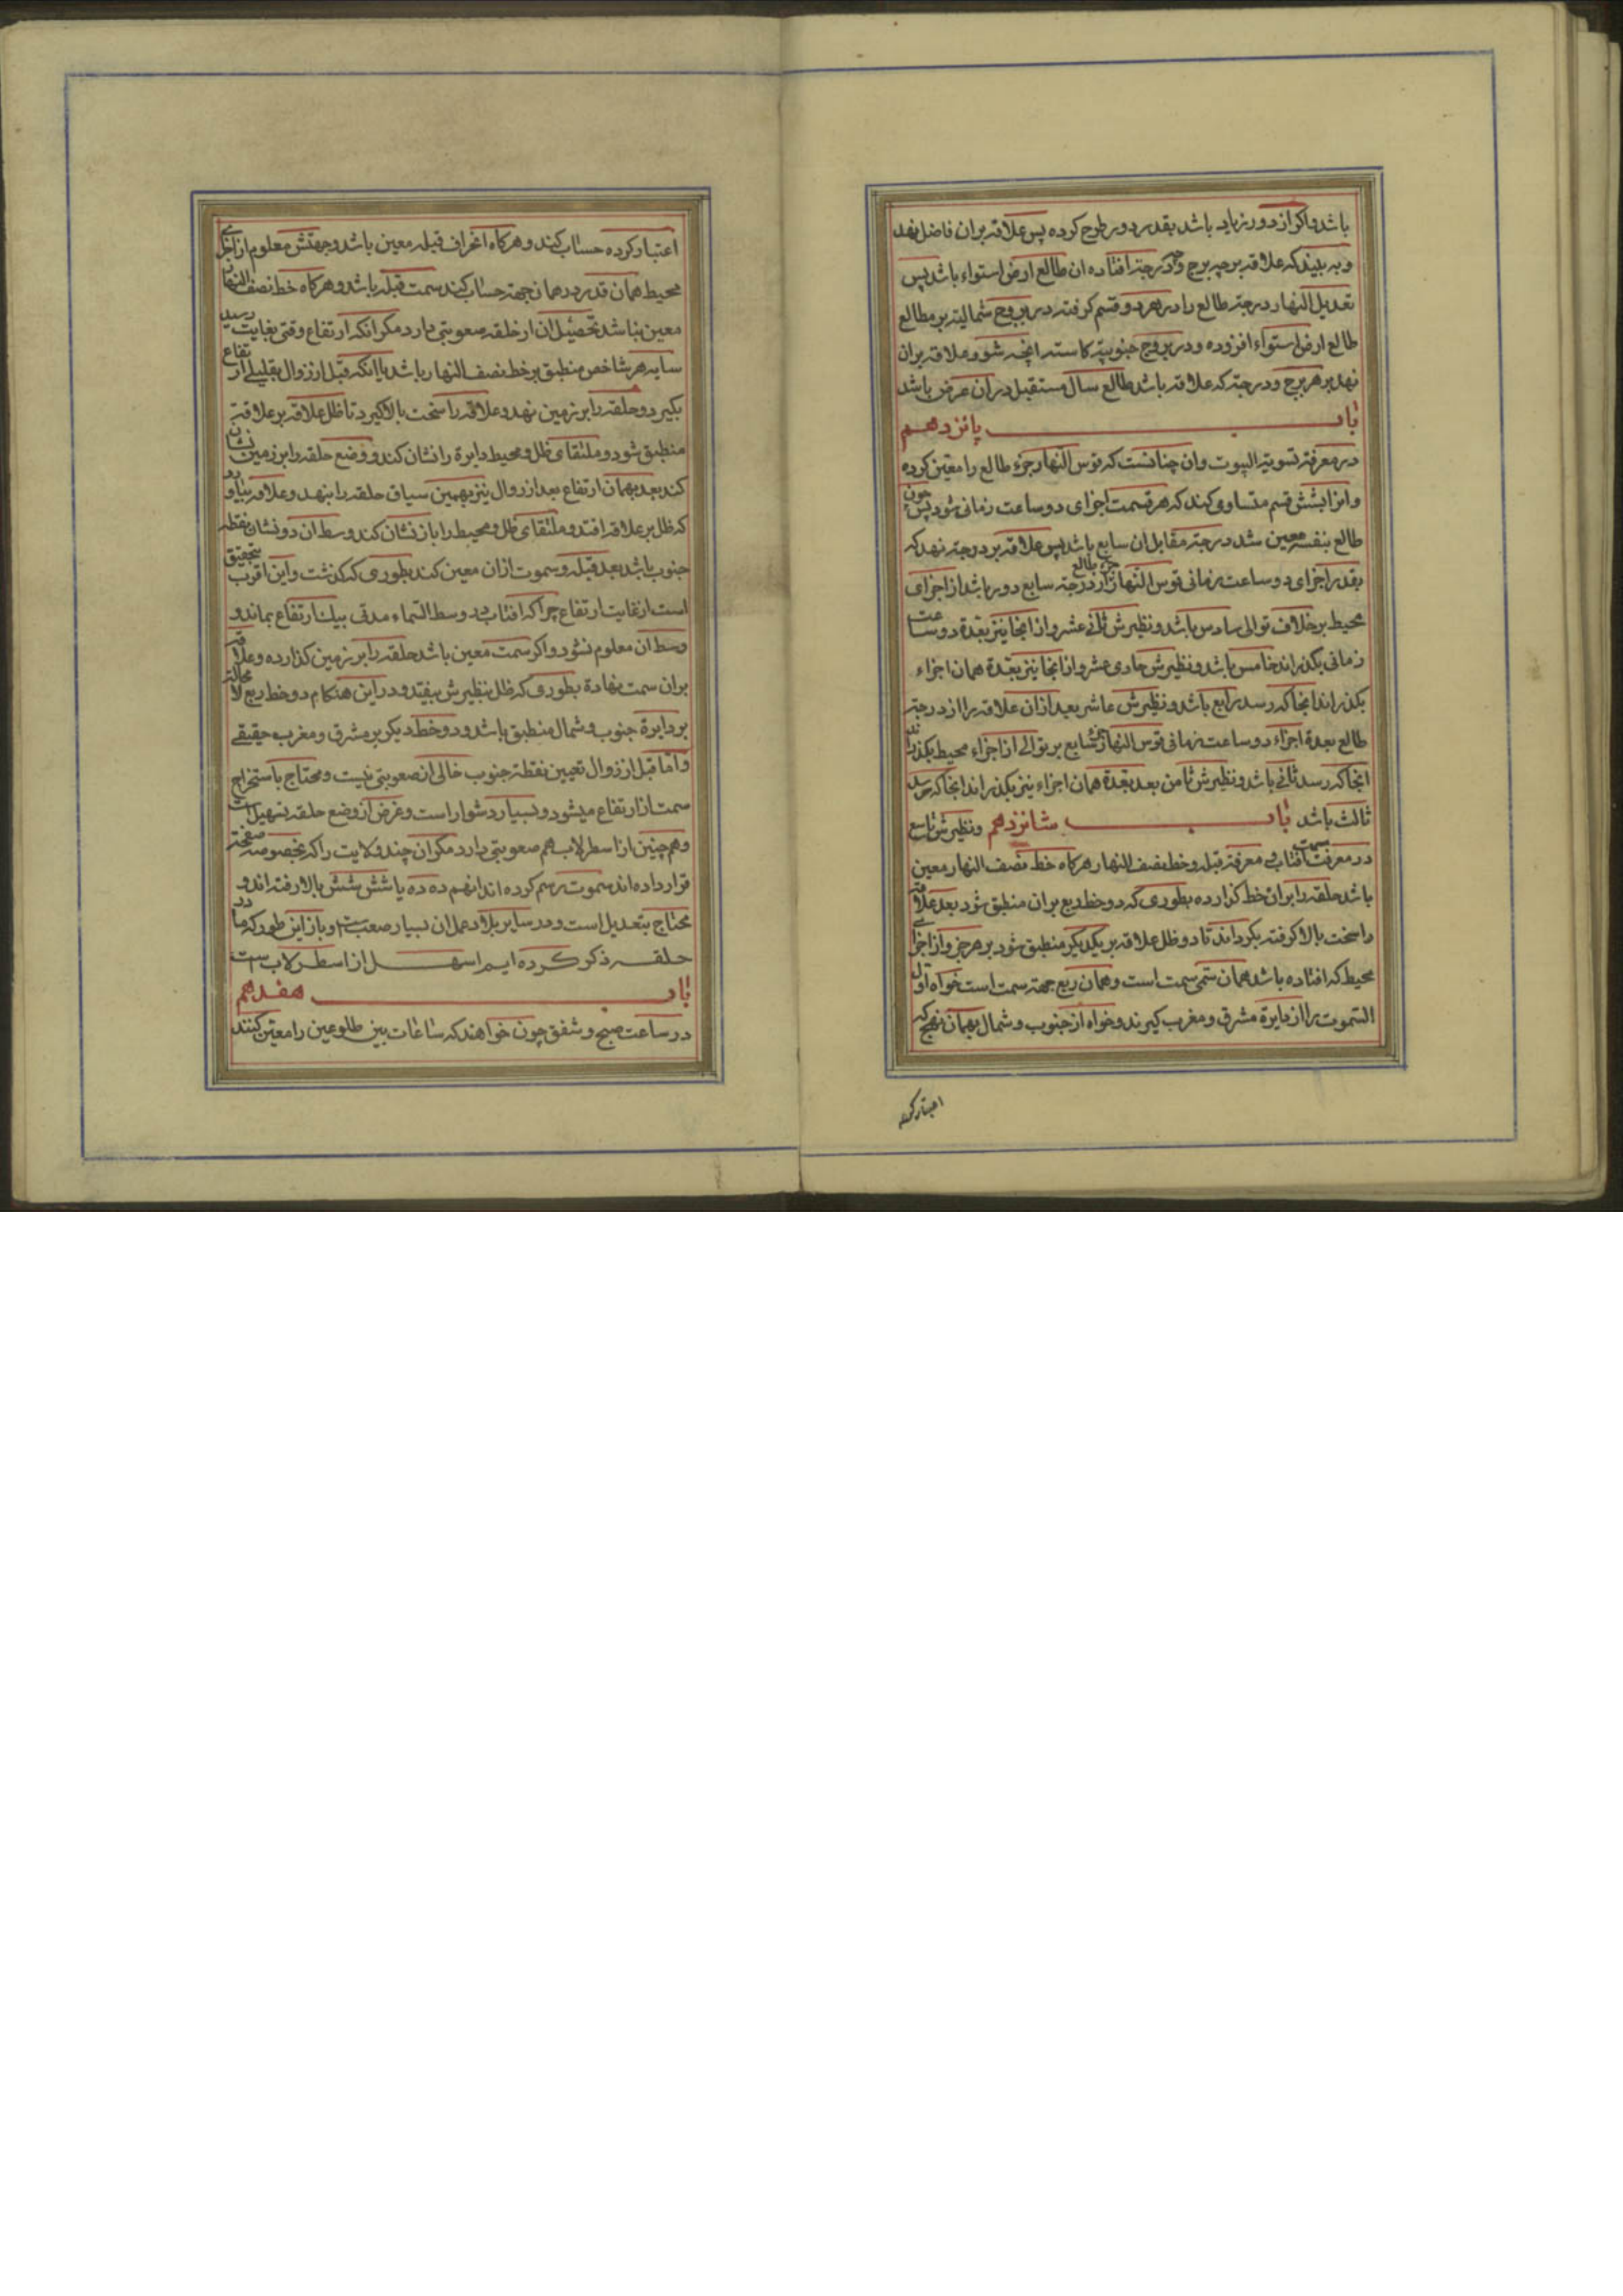 باشد و اکر از دور زیاید باشد بقدر دور طرح کرده پس علاقه بران فاضل نهد
و به بیند که علاقه بر چه برج و چه درجة افتاده ان طالع ارض استواء باشد پس
تعدیل النهار درجة طالع را در هر دو قسم کرفته در بروج شمالیة بر مطالع
طالع ارض استواء افزوده و در بروج جنوبیة کاسته انچه شود علاقه بران
نهد بر هر برج و درجة که علاقه باشد طالع سال مستقبل دران عرض باشد
باب پانزدهم
در معرفة تسویة البیوت وان چنانست که قوس النهار جزء طالع را معین کرده
وانرا بشش قسم متساوی کند که هر قسمت اجزای دو ساعت زمانی شود پس چون
طالع بنفسه معین شد درجة مقابل ان سابع باشد پس علاقه بر درجة نهد که
بقدر اجزای دو ساعت زمانی قوس النهار جزء طالع از درجة سابع دور باشد از اجزای
محیط بر خلاف توالی سادس باشد و نظیرش ثانی عشر و از انجا نیز بعدة دو ساعت
زمانی بکذراند خامس باشد و نظیرش حادی عشر و از انجا نیز بعدة همان اجزاء
بکذراند انجا که رسد رابع باشد و نظیرش عاشر بعد ازان علاقه را از درجة
طالع بعدة اجزاء دو ساعت زمانی قوس النهار سابع بر توالی از اجزاء محیط بکذراند
انجا که رسد ثانی باشد و نظیرش ثامن بعد بعدة همان اجزاء نیز بکذراند انجا که رسد
ثالث باشد و نظیرش تاسع باب شانزدهم
در معرفت سمت افتاب و معرفة قبله و خط نصف النهار هرکاه خط نصف النهار معین
باشد حلقه را بران خط کذارده بطوری که دو خط ربع بران منطبق شود بعد علاقه
را سخت بالا کرفته بکرداند تا دو ظل علاقه بر یکدیکر منطبق شود بر هر جزو از اجزای
محیط که افتاده باشد همان سمی سمت است و همان ربع جهة سمت است خواه اول
السموت را از دایرة مشرق و مغرب کیرند و خواه از جنوب و شمال بهمان نهج که
اعتبار کرده
اعتبار کرده حساب کند و هرکاه انحراف قبله معین باشد و جهتش معلوم از اجزای
محیط همان قدر در همان جهة حساب کند سمت قبله باشد و هرکاه خط نصف النهار
معین نباشد تحصیل ان از حلقه صعوبتی دارد مکر انکه ارتفاع وقتی بغایت رسید
سایه هر شاخص منطبق بر خط نصف النهار باشد یا انکه قبل از زوال بقلیلی ارتفاع
بکیرد و حلقه را بر زمین نهد و علاقه را سخت بالا کیرد تا ظل علاقه بر علاقة
منطبق شود و ملتقای ظل و محیط دایرة را نشان کند و وضع حلقه را بر زمین نشان
کند بعد بهمان ارتفاع بعد از زوال نیز بهمین سیاق حلقه را بنهد و علاقه بیاورد
که ظل بر علاقه افتد و ملتقای ظل و محیط را باز نشان کند وسط ان دو نشان نقطه
جنوب باشد بعد قبله و سموت ازان معین کند بطوری که کذشت و این اقرب بتحقیق
است از غایت ارتفاع چرا که افتاب در وسط السماء مدتی بیک ارتفاع بماند و
وسط ان معلوم نشود و اکر سمت معین باشد حلقه را بر زمین کذارده و علاقه
بران سمت نهادة بطوری که ظل بنظیرش بیفتد و در این هنکام دو خط ربع لا محالة
بر دایرة جنوب و شمال منطبق باشد و دو خط دیکر بر مشرق و مغرب حقیقی
و اما قبل از زوال تعیین نقطة جنوب خالی از صعوبتی نیست و محتاج باستخراج
سمت از ارتفاع میشود و بسیار دشوار است و غرض از وضع حلقه تسهیل است
و هم چنین از اسطرلاب هم صعوبتی دارد مکر ان چند ولایت را که بخصوصه صفحة
قرار داده اند سموت رسم کرده اند انهم ده ده یا شش شش بالا رفته اند و
محتاج بتعدیل است و در سایر بلاد عمل ان بسیار صعب است و باز این طور که ما در
حلقه ذکر کرده ایم اسهل از اسطرلاب است
باب هفدهم
در ساعت صبح و شفق چون خواهند که ساعات بین طلوعین را معین کنند